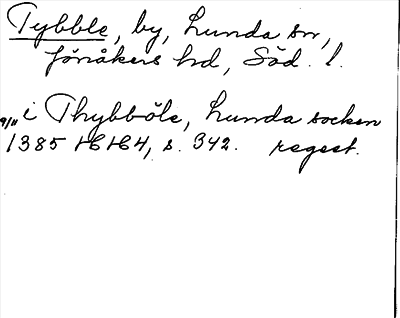 Tybble, by, Lunda sn,
Jönåkers hd, Söd. l.
9/11 i Thybböle, Lunda socken
1385 HH4, s. 342. regest.